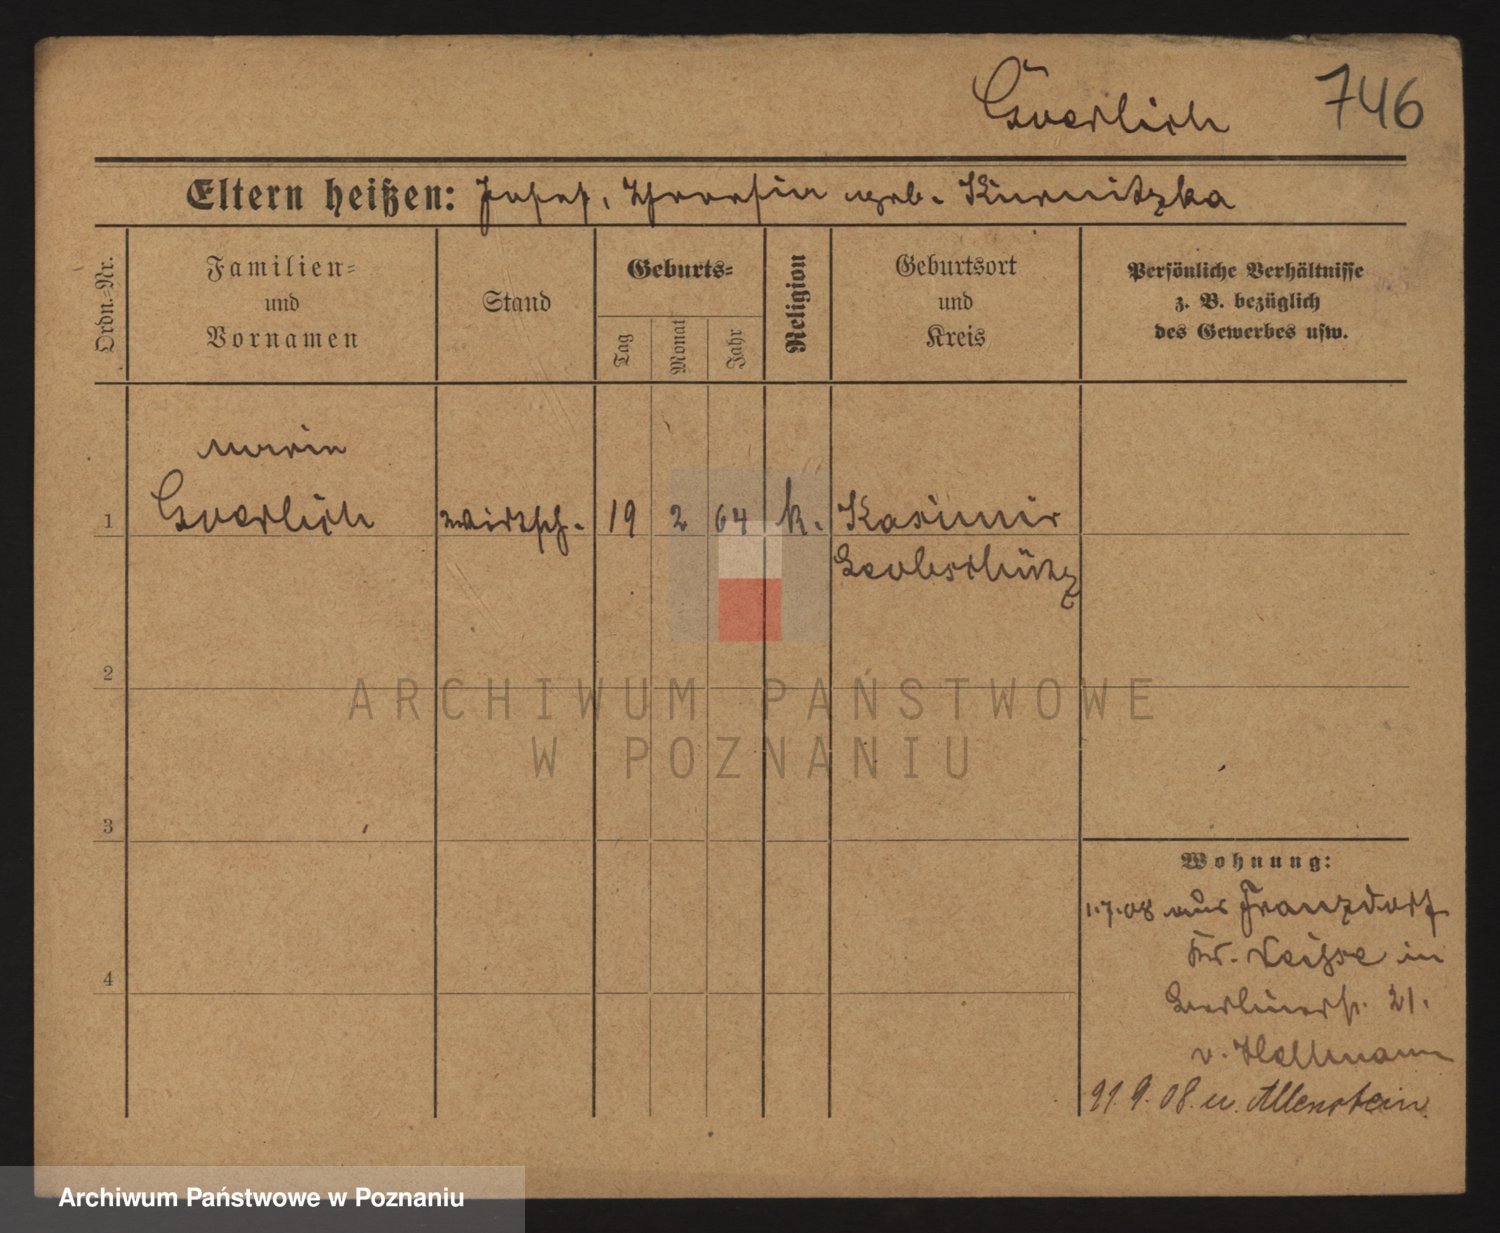 Goerlich 746
Eltern heißen: Josef, Theresia geb. Kurnitzka
Ordn.-Nr.
Familien-
und
Vornamen
Stand
Geburts-
Tag
Monat
Jahr
Religion
Geburtsort
und
Kreis
Persönliche Verhältnisse
z. B. bezüglich
des Gewerbes usw.
Maria
1 Goerlich Wirtsch. 19 2 64 k. Kasimir
Leobschütz
2
ARCHIWUM PAŃSTWOWE
W POZNANIU
3
Wohnung:
1.7.08 aus Franzdorf
4
Kr. Neisse in
Berlinerstr. 21.
v. Hellmann
21.9.08 n. Allenstein
Archiwum Państwowe w Poznaniu